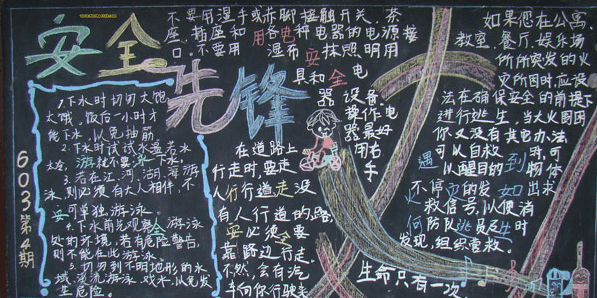 安全
先锋
603第4期
1.下水时切勿太饱
太饿。饭后一小时才
能下水,以免抽筋
2.下水时试试水温若水
太冷,游就不要泳下水。
3.若在江、河、湖、海游
泳,则必须有大人相伴,不
安可单独游泳。
4.下水前先观察全游泳
处的环境,若有危险警告,
则不能在此游泳。
5.切勿到不明地形的水
域、漂流游泳、戏水,以免发
生危险。
不要用湿手或赤脚接触开关、茶
座、插座和用各电种电器的电源接
口。不要用湿布安抹照明用
具和全电
器设备。
操作电
器最好
用右
手
在道路上
行走时,要走
人行行道走没
有人行道的路,
安必须要全
靠路边行走。
不然,会有汽
车向你行驶来
如果您在公寓、
教室、餐厅、娱乐场
所所突发的火
灾所困时,应设
法在确保安全的前提下
进行逃生。当大火围困
你又没有其它办法
可以自救时,可
遇以醒目的到物体
不停灾的发如出求
救信号,以便消
何防队逃员生时
发现,组织营救。
生命只有一次